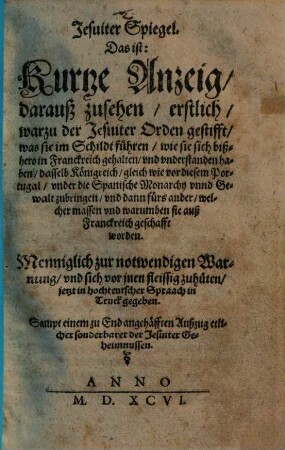 Jesuiter Spiegel.
Das ist:
Kurtze Anzeig/
darauß zusehen / erstlich /
warzu der Jesuiter Orden gestifft/
was sie im Schildt führen / wie sie sich biß-
hero in Franckreich gehalten/ vnd vnderstanden ha-
ben/ dasselb Königreich/ gleich wie vor diesem Por-
tugal / vnder die Spanische Monarchy vnnd Ge-
walt zubringen / vnd dann fürs ander/ wel-
cher massen vnd warumben sie auß
Franckreich geschafft
worden.
Menniglich zur notwendigen War-
nung/ vnd sich vor jnen fleissig zuhüten/
jetzt in hochteutscher Spraach in
Truck gegeben.
Sampt einem zu End angehäfften Außzug etli-
cher sonderbarer der Jesuiter Ge-
heimnussen.
ANNO
M. D. XCVI.